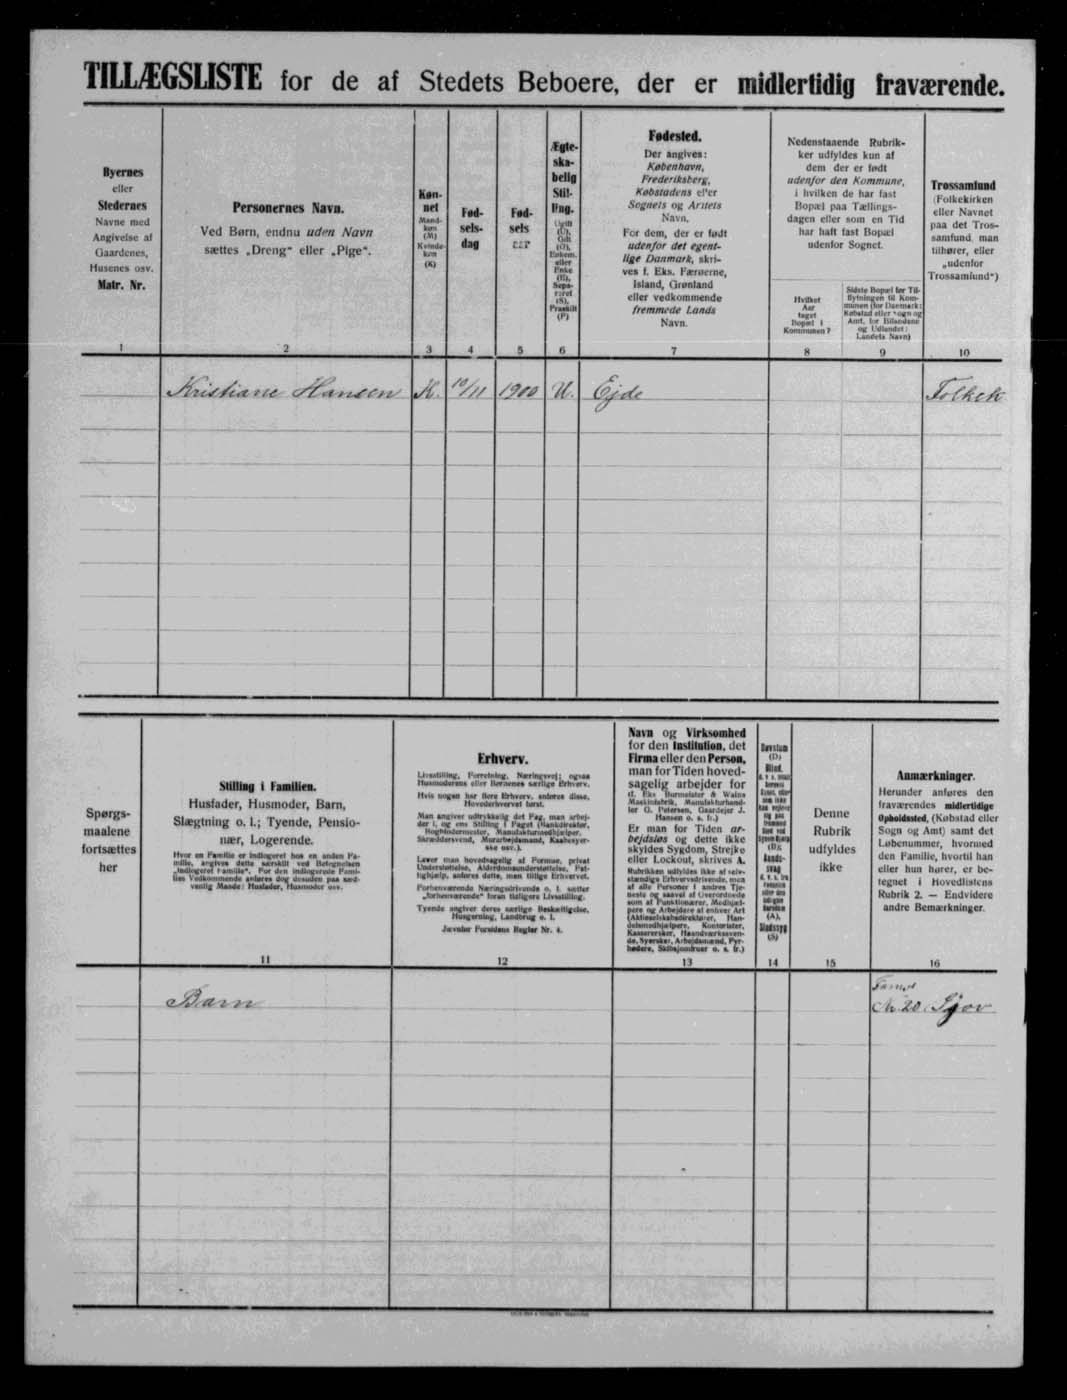 TILLÆGSLISTE for de af Stedets Beboere, der er midlertidig fraværende.
Byernes
eller
Stedernes
Navne med
Angivelse af
Gaardenes,
Husenes osv.
Matr. Nr.
Personernes Navn.
Ved Børn, endnu uden Navn
sættes „Dreng“ eller „Pige“.
Køn-
net
Mand-
køn
(M)
Kvinde-
køn
(K)
Fød-
sels-
dag
Fød-
sels
aar
Ægte-
ska-
belig
Stil-
ling.
Ugift
(U),
Gift
(G),
Enkem.
eller
Enke
(E),
Sepa-
reret
(S),
Fraskilt
(F)
Fødested.
Der angives:
København,
Frederiksberg,
Købstadens eller
Sognets og Amtets
Navn.
For dem, der er født
udenfor det egent-
lige Danmark, skri-
ves f. Eks. Færøerne,
Island, Grønland
eller vedkommende
fremmede Lands
Navn.
Nedenstaaende Rubrik-
ker udfyldes kun af
dem der er født
udenfor den Kommune,
i hvilken de har fast
Bopæl paa Tællings-
dagen eller som en Tid
har haft fast Bopæl
udenfor Sognet.
Hvilket
Aar
taget
Bopæl i
Kommunen?
Sidste Bopæl før Til-
flytningen til Kom-
munen (for Danmark:
Købstad eller Sogn og
Amt, for Bilandene
og Udlandet:
Landets Navn)
Trossamfund
(Folkekirken
eller Navnet
paa det Tros-
samfund, man
tilhører, eller
„udenfor
Trossamfund“)
1 2 3 4 5 6 7 8 9 10
Kristiane Hansen K. 10/11 1900 U. Ejde Folkek
Spørgs-
maalene
fortsættes
her
Stilling i Familien.
Husfader, Husmoder, Barn,
Slægtning o. l.; Tyende, Pensio-
nær, Logerende.
Hvor en Familie er indlogeret hos en anden Fa-
milie, angives dette særskilt ved Betegnelsen
„indlogeret Familie“. For den indlogerede Fami-
lies Vedkommende anføres dog desuden paa sæd-
vanlig Maade: Husfader, Husmoder osv.
Erhverv.
Livsstilling, Forretning, Næringsvej; ogsaa
Husmoderens eller Børnenes særlige Erhverv.
Hvis nogen har flere Erhverv, anføres disse,
Hovederhvervet først.
Man angiver udtrykkelig det Fag, man arbej-
der i, og ens Stilling i Faget (Bankdirektør,
Bogbindermester, Manufakturmedhjælper,
Skræddersvend, Murarbejdsmand, Kaabesyer-
ske osv.).
Lever man hovedsagelig af Formue, privat
Understøttelse, Alderdomsunderstøttelse, Fat-
tighjælp, anføres dette, men tillige Erhvervet.
Forhenværende Næringsdrivende o. l. sætter
„forhenværende“ foran tidligere Livsstilling.
Tyende angiver deres særlige Beskæftigelse,
Husgerning, Landbrug o. l.
Jævnfør Forsidens Regler Nr. 4.
Navn og Virksomhed
for den Institution, det
Firma eller den Person,
man for Tiden hoved-
sagelig arbejder for
(f. Eks Burmeister & Wains
Maskinfabrik, Manufakturhand-
ler G. Petersen, Gaardejer J.
Hansen o. s. fr.)
Er man for Tiden ar-
bejdsløs og dette ikke
skyldes Sygdom, Strejke
eller Lockout, skrives A.
Rubrikken udfyldes ikke af selv-
stændige Erhvervsdrivende, men
af alle Personer i andres Tje-
neste og saavel af Overordnede
som af Funktionærer, Medhjæl-
pere og Arbejdere af enhver Art
(Aktieselskabsdirektører, Han-
delsmedhjælpere, Kontorister,
Kasserersker, Haandværkssven-
de, Syersker, Arbejdsmænd, Fyr-
bødere, Skibsjomfruer o. s. fr.)
Døvstum
(D)
Blind,
(B);
Aands-
svag
(A),
Sindssyg
(S)
Denne
Rubrik
udfyldes
ikke
Anmærkninger.
Herunder anføres den
fraværendes midlertidige
Opholdssted, (Købstad eller
Sogn og Amt) samt det
Løbenummer, hvormed
den Familie, hvortil han
eller hun hører, er be-
tegnet i Hovedlistens
Rubrik 2. — Endvidere
andre Bemærkninger.
11 12 13 14 15 16
Barn
Nr. 20. Sjov